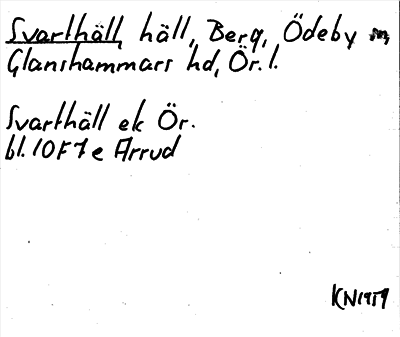 Svarthäll, häll, Berg, Ödeby sn,
Glanshammars hd, Ör. l.
Svarthäll ek Ör.
bl. 10F7e Arrud
KN1959